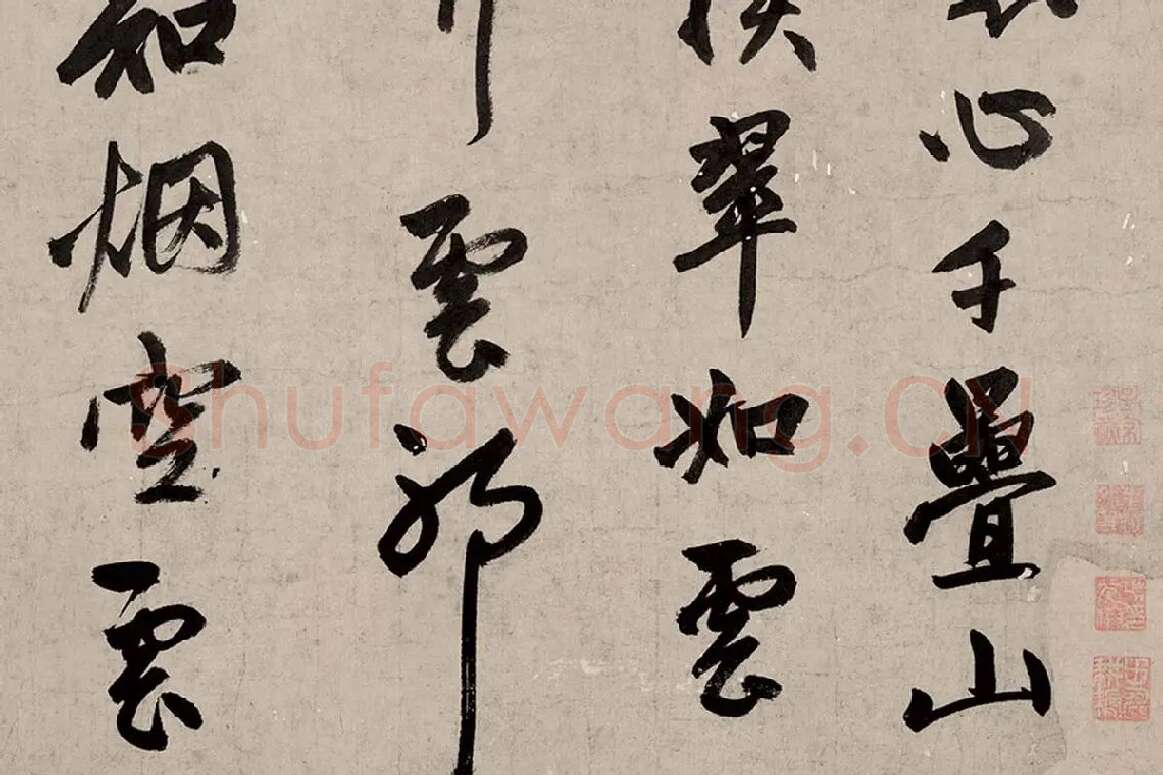 心千疊山
翠如雲
雲耶
知烟空雲
Shufawang.cn